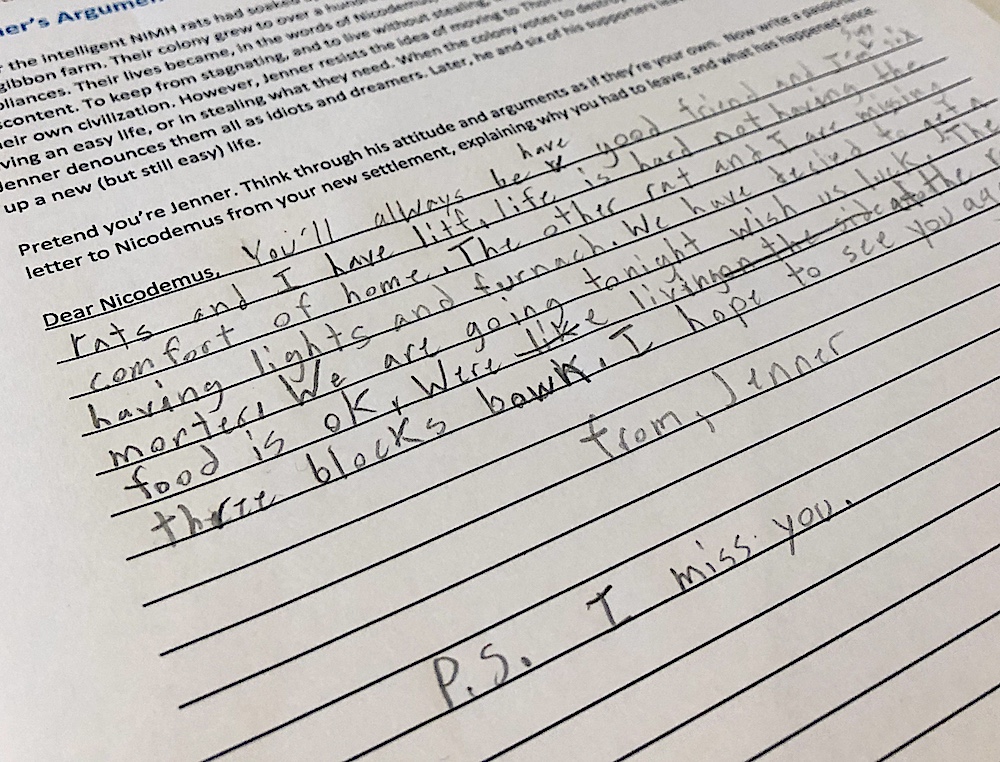 ner's Argumen
r the intelligent NIMH rats had soaked
gibbon farm. Their colony grew to over a hun
pliances. Their lives became, in the words of Nicodemus
scontent. To keep from stagnating, and to live without stealing,
heir own civilization. However, Jenner resists the idea of moving to Thor
ving an easy life, or in stealing what they need. When the colony votes to destroy
Jenner denounces them all as idiots and dreamers. Later, he and six of his supporters lea
up a new (but still easy) life.
Pretend you're Jenner. Think through his attitude and arguments as if they're your own. Now write a passiona
letter to Nicodemus from your new settlement, explaining why you had to leave, and what has happened since.
have
Dear Nicodemus, You'll always be good friend and six
rats and I have liff, life is hard not having the
comfort of home. The other rat and I are missing
having lights and furnach. We have decied to get a
morter, We are going tonight wish us luck. The
food is ok, Were like living on the side the
three blocks bown. I hope to see you ag
from, Jenner
P.S. I miss you.